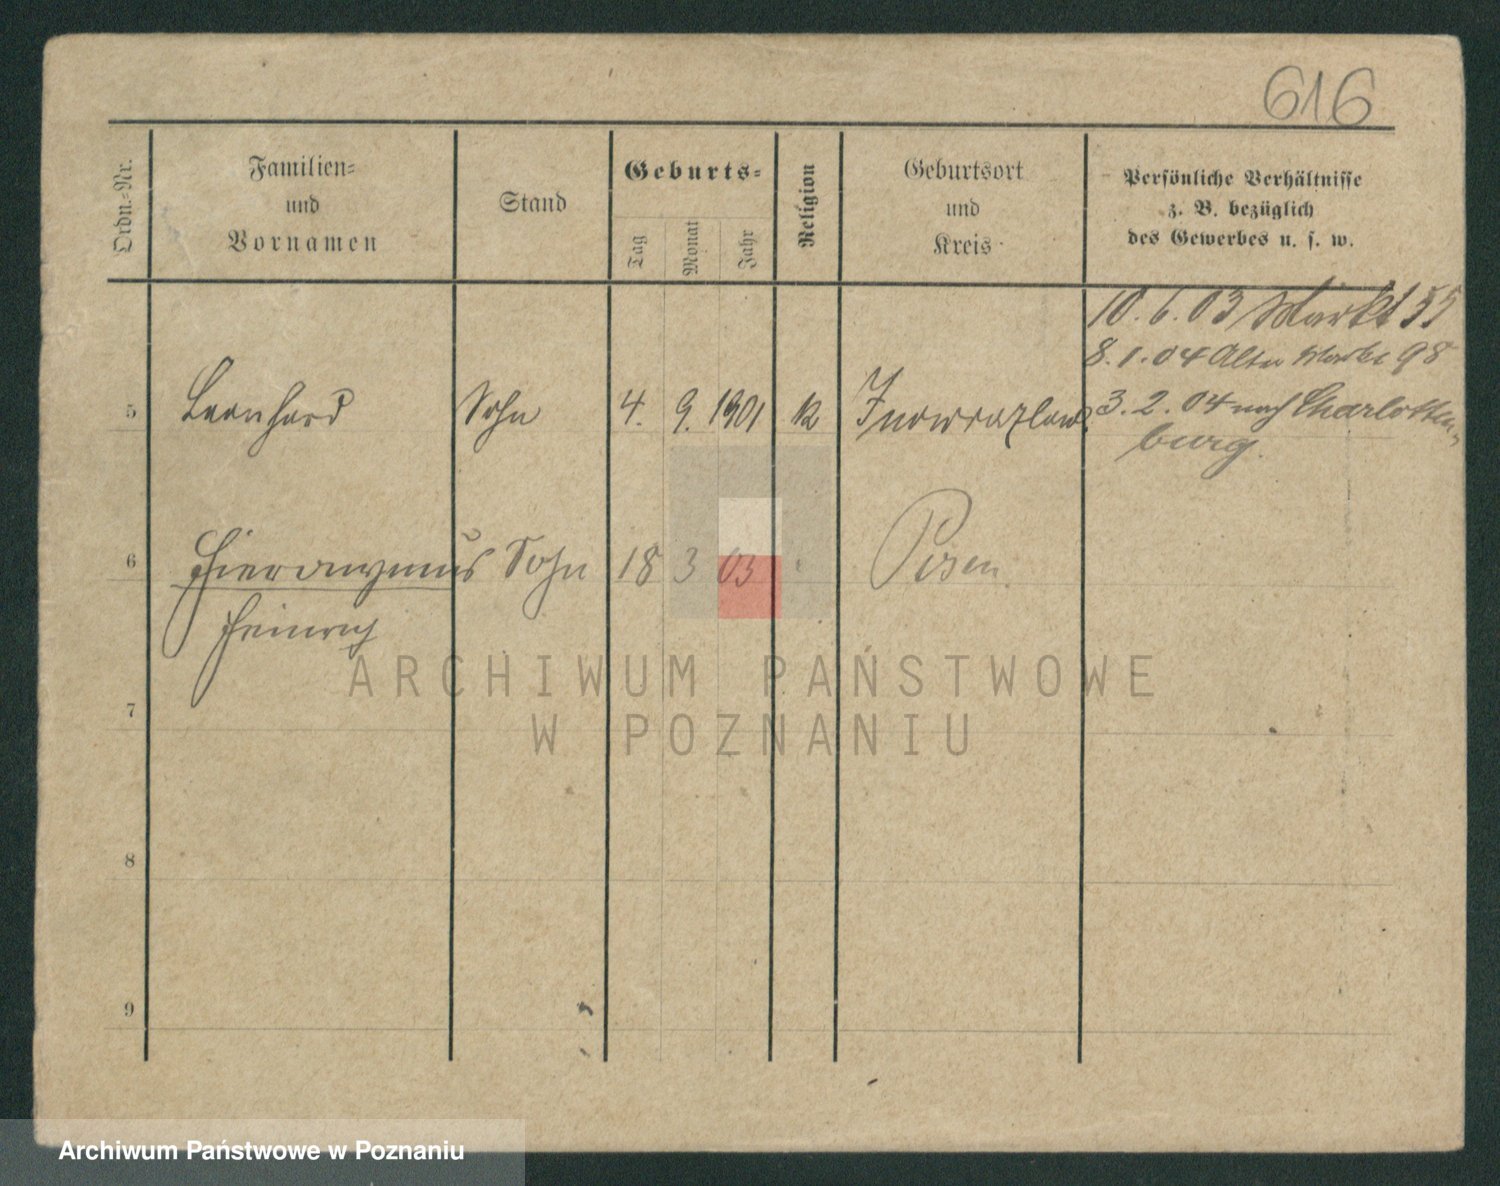 616
Ordn.-Nr.
Familien-
und
Vornamen
Stand
Geburts-
Tag
Monat
Jahr
Religion
Geburtsort
und
Kreis
Persönliche Verhältnisse
z. B. bezüglich
des Gewerbes u. s. w.
10.6.03 Markt 55
8.1.04 Alter Markt 98
5 Leonhard Sohn 4. 9. 1901 k Inowrazlaw 3.2.04 nach Charlotten-
burg.
6 Hieronymus Sohn 18 3 03 Posen.
Heinrich
7
8
9
ARCHIWUM PAŃSTWOWE
W POZNANIU
Archiwum Państwowe w Poznaniu